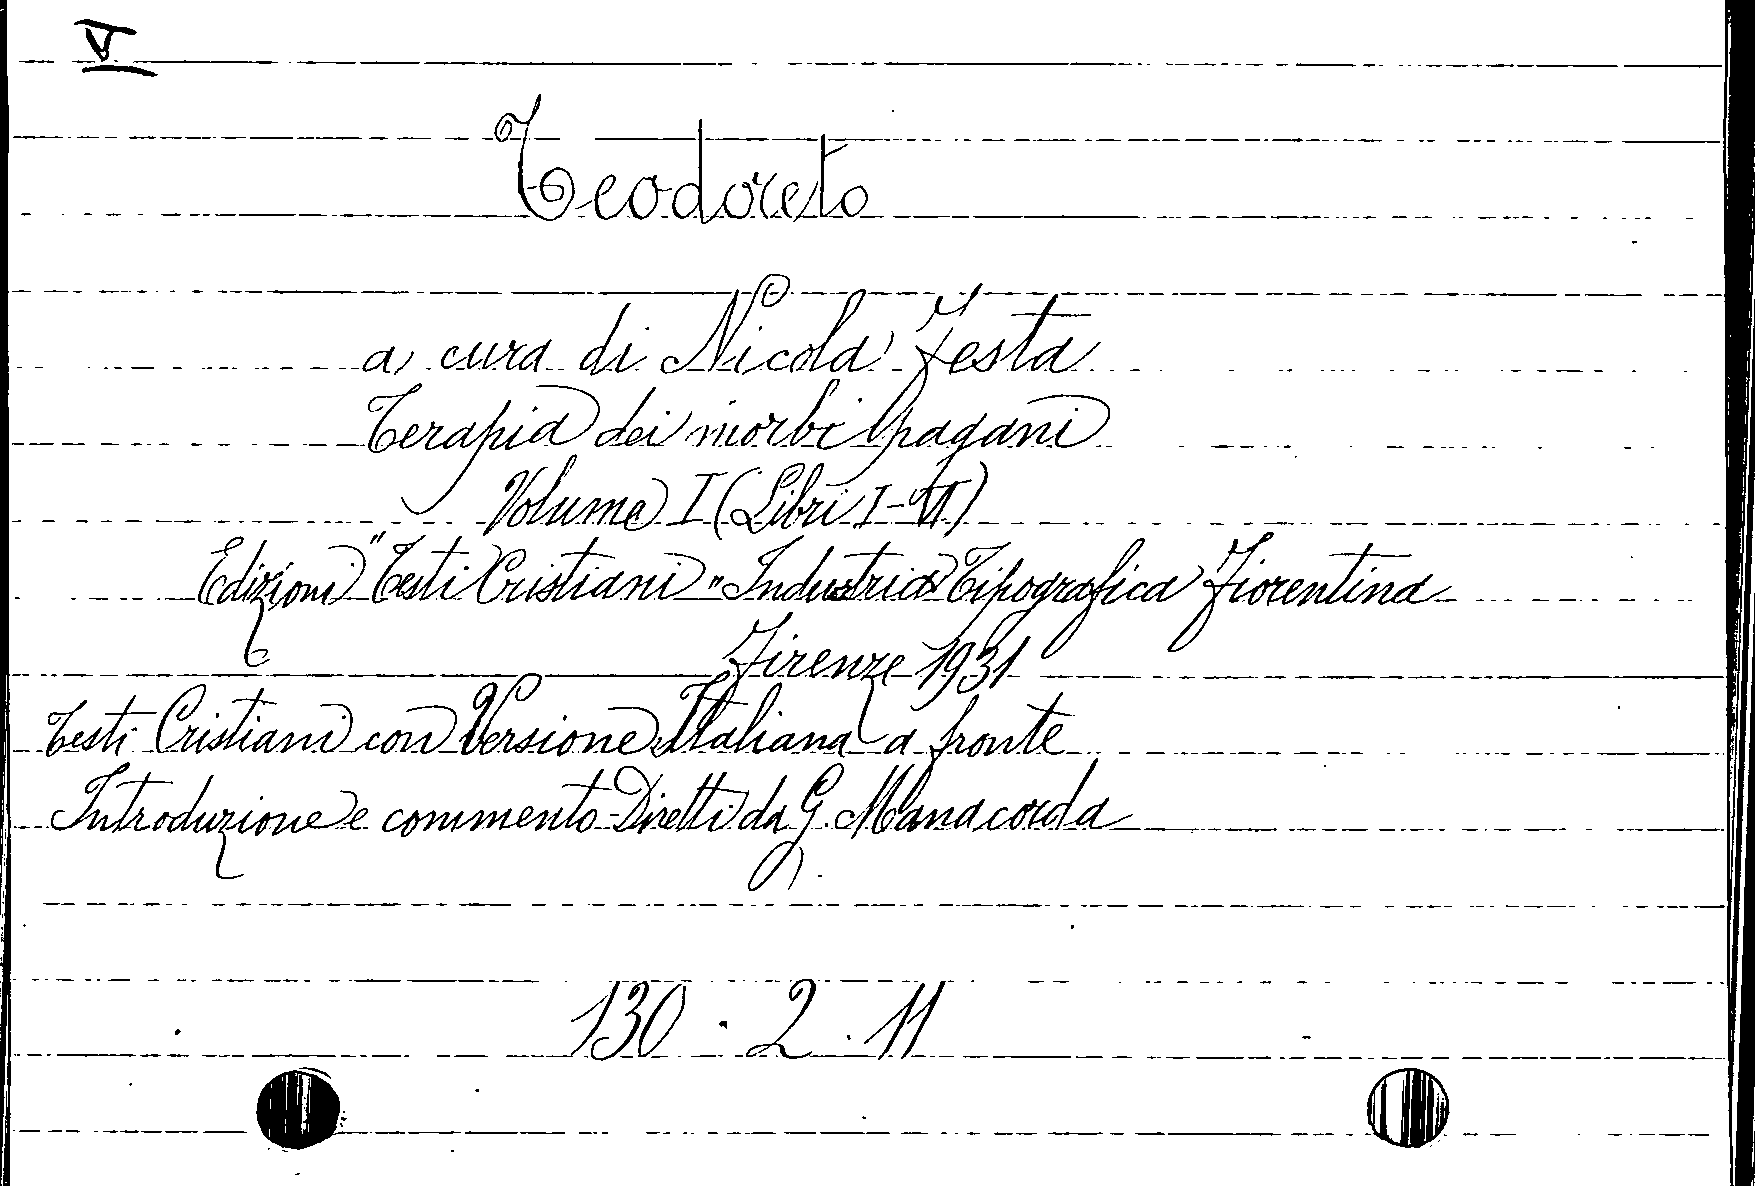 V
Teodoreto
a cura di Nicola Festa
Terapia dei morbi pagani
Volume I (Libri I-VI)
Edizioni "Testi Cristiani" Industria Tipografica Fiorentina
Firenze 1931
Testi Cristiani con Versione Italiana a fronte
Introduzione e commento Diretti da G. Manacorda
130 · 2 · 11